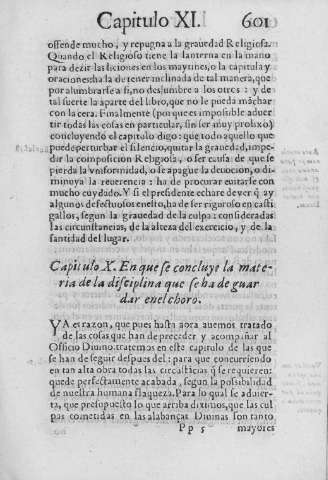 Capitulo XI. 601
offende mucho, y repugna a la grauedad Religiosa.
Quando el Religioso tiene la lanterna en la mano
para dezir las liciones en los maytines, o la capitula y
oraciones: ha la de tener inclinada de tal manera, que
por alumbrarse a si, no deslumbre a los otros: y de
tal suerte la aparte del libro, que no le pueda mãchar
con la cera. Finalmente (por que es impossible aduer
tir todas las cosas en particular, sin ser muy prolixo)
concluyendo el capitulo digo: que todo aquello que
puede perturbar el silencio, quitar la grauedad, impe-
dir la composicion Religiosa, o ser causa de que se
pierda la vniformidad, o se apague la deuocion, o di-
minuya la reuerencia: ha de procurar euitarse con
mucho cuydado. Y si el presidente echare de ver q̃ ay
algunos defectuosos en esto, ha de ser riguroso en casti
gallos, segun la grauedad de la culpa: consideradas
las circunstancias, de la alteza del exercicio, y de la
santidad del lugar.
Capitulo X. En que se concluye la mate-
ria de la disciplina que se ha de guar
dar en el choro.
YA es razon, que pues hasta aora auemos tratado
de las cosas que han de preceder y acompañar al
Officio Diuino, tratemos en este capitulo de las que
se han de seguir despues del: para que concurriendo
en tan alta obra todas las circũstãcias q̃ se requieren:
quede perfectamente acabada, segun la possibilidad
de nuestra humana flaqueza. Para lo qual se aduier-
ta, que presupuesto lo que arriba diximos, que las cul
pas cometidas en las alabanças Diuinas son tanto
Pp 5 mayores